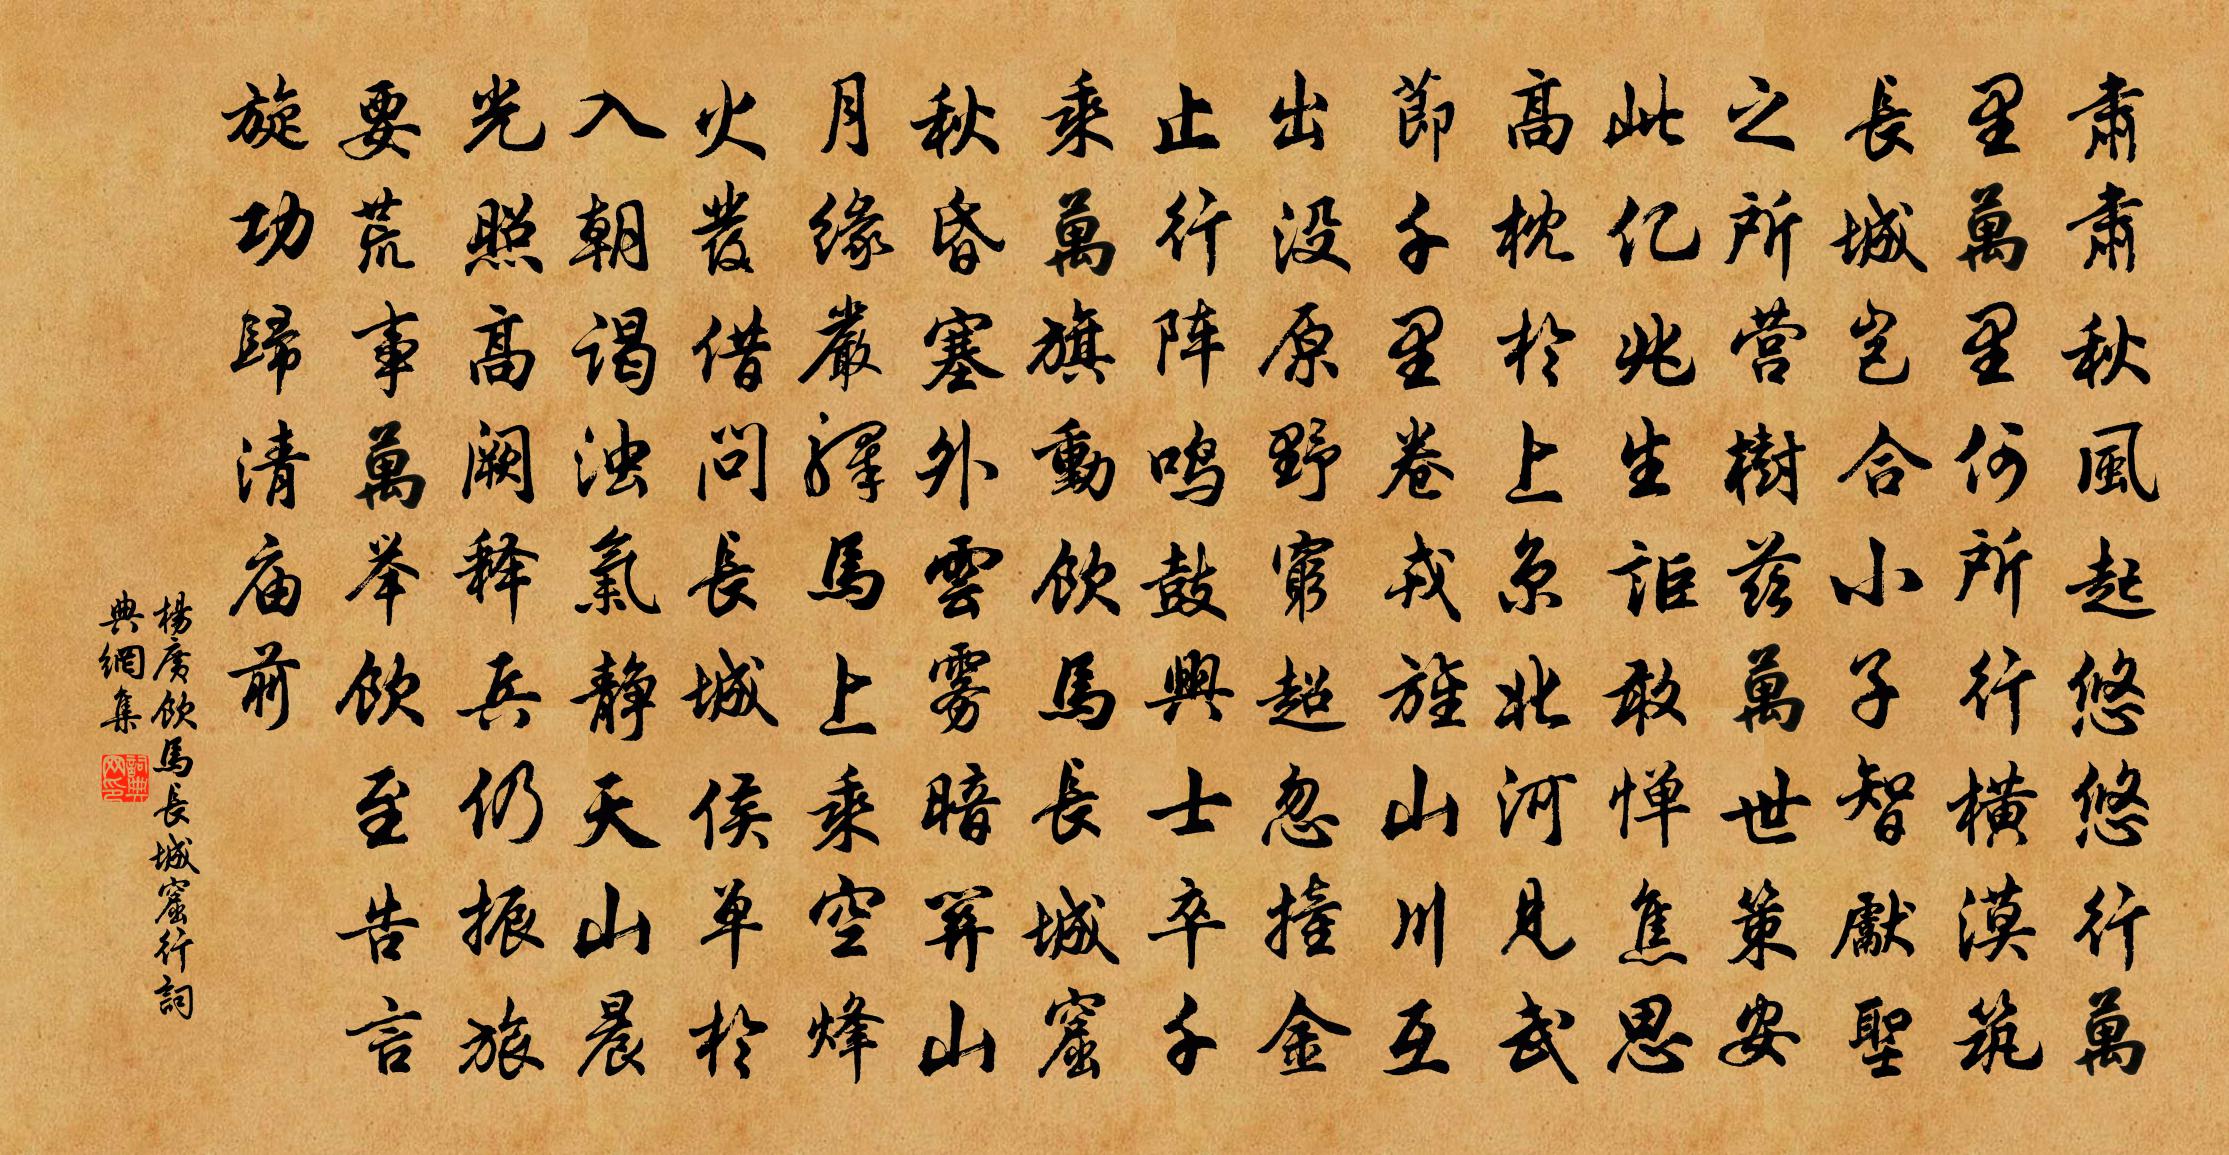 肅肅秋風起悠悠行萬
里萬里何所行橫漠筑
長城岂合小子智獻聖
之所营樹兹萬世策安
此亿兆生詎敢惮焦思
高枕於上京北河見武
節千里卷戎旌山川互
出没原野窮超忽撞金
止行阵鸣鼓興士卒千
乘萬旗動飲馬長城窟
秋昏塞外雲雾暗関山
月缘嚴驛馬上乘空烽
火發借問長城侯单於
入朝謁浊氣静天山晨
光照高阙释兵仍振旅
要荒事萬举飲至告言
旋功歸清庙前
楊廣飲馬長城窟行詞
典網集
詞典网印